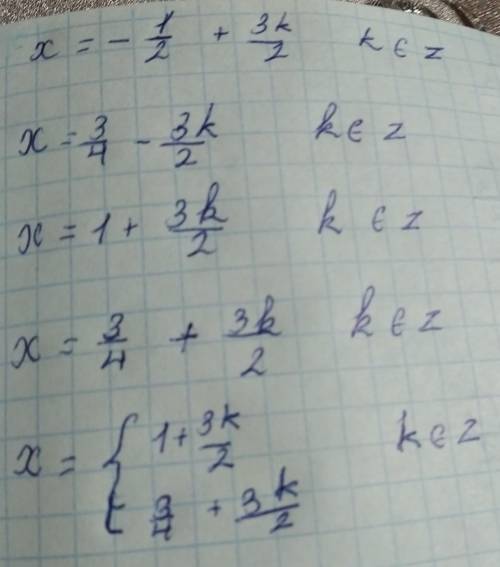 x = - 1/2 + 3k/2 k ∈ z
x = 3/4 - 3k/2 k ∈ z
x = 1 + 3k/2 k ∈ z
x = 3/4 + 3k/2 k ∈ z
x = { 1 + 3k/2 k ∈ z
3/4 + 3k/2